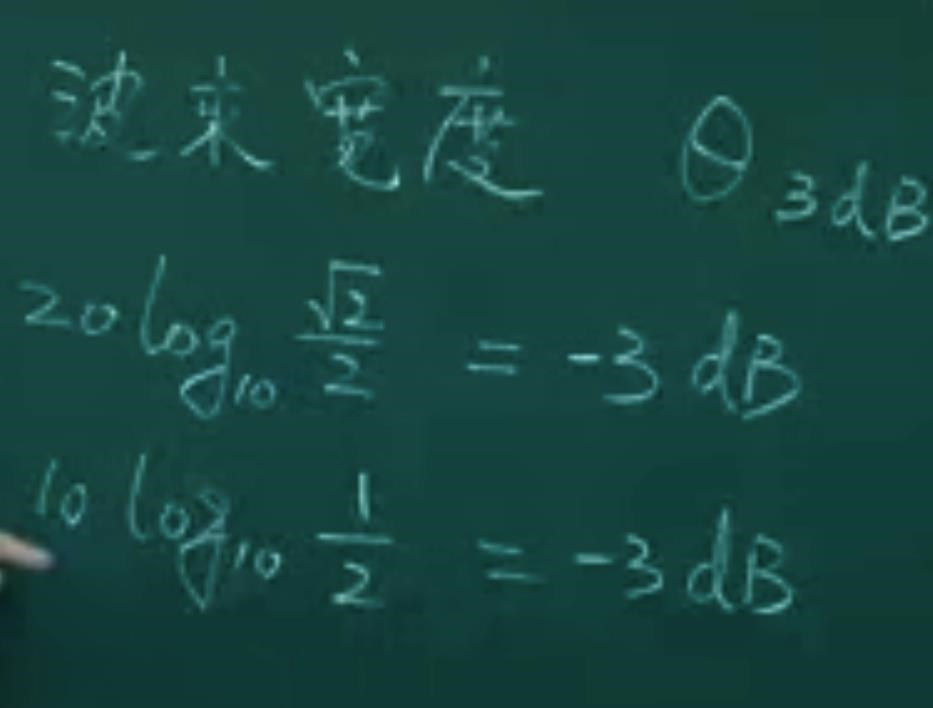 波束宽度 θ₃dB
20 log₁₀ √2/2 = -3 dB
10 log₁₀ 1/2 = -3 dB